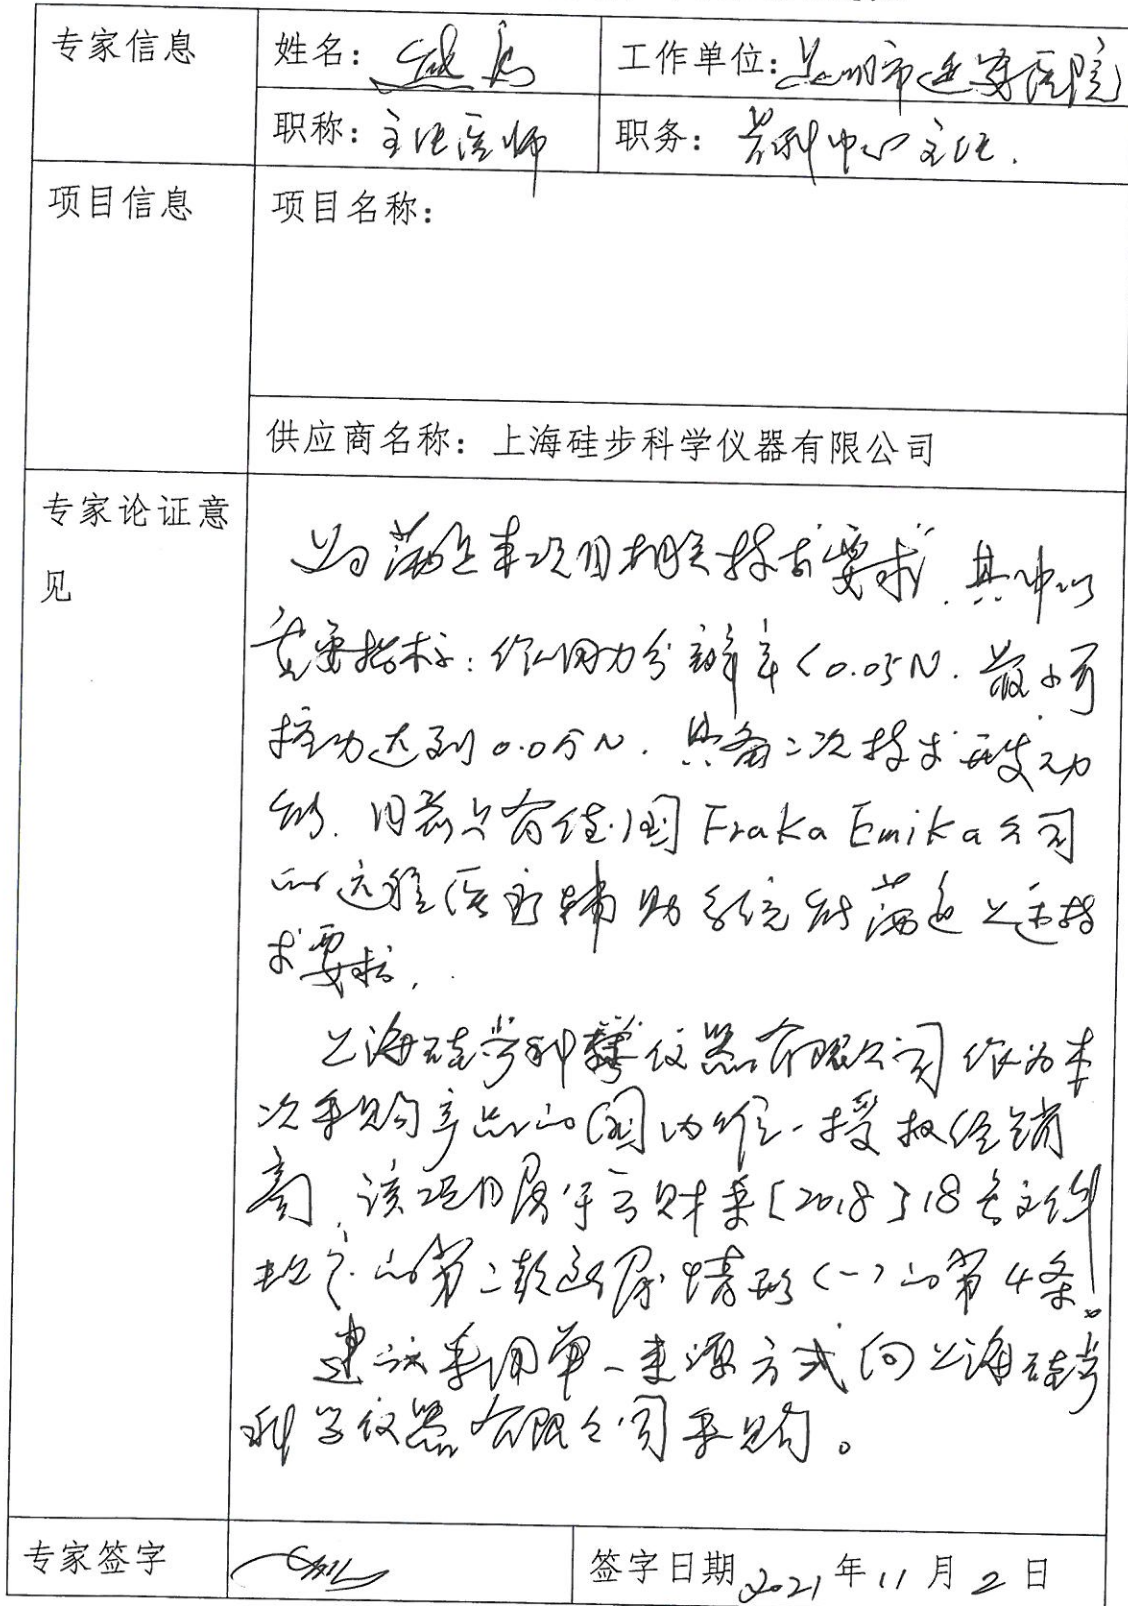 专家信息
姓名：
工作单位：昆明市延安医院
职称：主任医师
职务：中心主任.
项目信息
项目名称：
供应商名称：上海硅步科学仪器有限公司
专家论证意
见
为满足本项目相关技术要求，其中的
重要指标：作用力分辨率<0.05N．最小可
控力达到0.05N．具备二次技术开发功
能．目前只有德国FraKa EmiKa公司
的远程医疗辅助系统能满足上述技
术要求．
上海硅步科学仪器有限公司作为本
次采购产品的国内唯一授权经销
商，该项目属于云财采[2018]18号文件
规定的第二款适用情形（一）的第4条。
建议采用单一来源方式向上海硅步
科学仪器有限公司采购。
专家签字
签字日期2021年11月2日